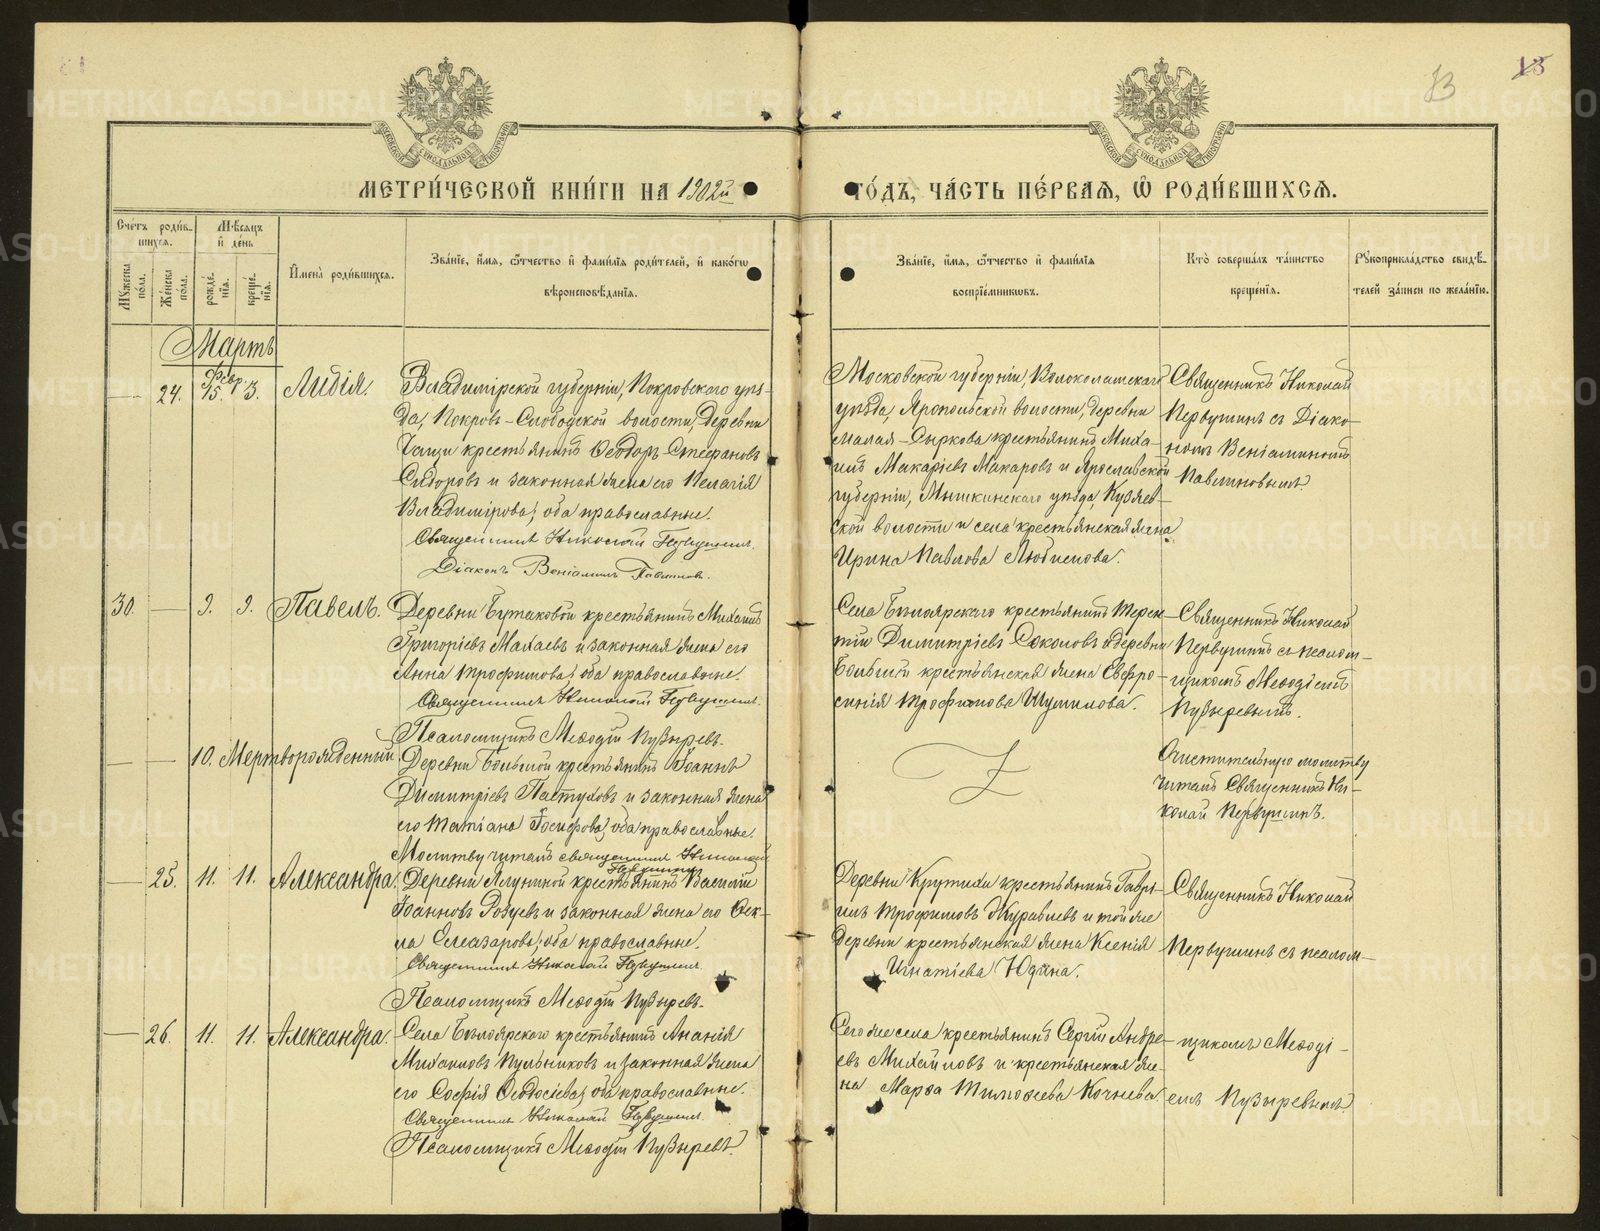 13
МЕТРИ́ЧЕСКОЙ КНИ́ГИ НА 1902й
ГО́ДЪ, ЧА́СТЬ ПЕ́РВАЯ, Ѡ РОДИ́ВШИХСЯ.
Сче́тъ роди́в-
шихся.
Мѣ́сяцъ
и де́нь
Мꙋжеска по́ла.
Же́нска по́ла.
рожде́-
нїя.
креще́-
нїя.
И҆мена̀ роди́вшихся.
Зва́нїе, и҆́мя, ѻ҆́тчество и҆ фами́лїя роди́телей, и҆ како́гѡ
вѣроисповѣ́данїя.
Зва́нїе, и҆́мя, ѻ҆́тчество и҆ фами́лїя
воспрїе́мникѡвъ.
Кто̀ соверша́лъ та́инство
креще́нїя.
Рꙋкоприкла́дство свидѣ́-
телей за́писи по жела́нїю.
Мартъ
— 24. Февр. 15. 3. Лидія.
Владимірской губерніи, Покровскаго уѣз-
да, Покровъ-Слободской волости, деревни
Чащи крестьянинъ Ѳеодоръ Стефановъ
Сидоровъ и законная жена его Пелагія
Владимірова, оба православные.
Священникъ Николай Первушинъ.
Діаконъ Веніаминъ Павлиновъ.
Московской губерніи, Волоколамскаго
уѣзда, Яропольской волости, деревни
Малая-Сыркова крестьянинъ Миха-
илъ Макаріевъ Макаровъ и Ярославской
губерніи, Мышкинскаго уѣзда,
ской волости и села крестьянская жена
Ирина Павлова Любимова.
Священникъ Николай
Первушинъ съ Діако-
номъ Веніаминомъ
Павлиновымъ
30. — 9. 9. Павелъ.
Деревни Бутаковой крестьянинъ Михаилъ
Григоріевъ Махаевъ и законная жена его
Анна Трофимова, оба православные.
Священникъ Николай Первушинъ.
Псаломщикъ Меѳодій Пузыревъ.
Села Бѣлоярскаго крестьянинъ Терен-
тій Димитріевъ Соколовъ и деревни
Большой крестьянская жена Евфро-
синія Трофимова Шумилова.
Священникъ Николай
Первушинъ съ псалом-
щикомъ Меѳодіемъ
Пузыревымъ.
— — 10. Мертворожденный.
Деревни Большой крестьянинъ Іоаннъ
Димитріевъ Пастуховъ и законная жена
его Татіана Іосифова, оба православные.
Молитву читалъ священникъ Николай
Первушинъ
Очистительную молитву
читалъ Священникъ Ни-
колай Первушинъ.
— 25. 11. 11. Александра.
Деревни Ялуниной крестьянинъ Василій
Іоанновъ и законная жена его Ѳек-
ла Елеазарова, оба православные.
Священникъ Николай Первушинъ.
Псаломщикъ Меѳодій Пузыревъ.
Деревни Крутихи крестьянинъ Гаврі-
илъ Трофимовъ Журавлевъ и той же
деревни крестьянская жена Ксенія
Игнатіева Юдина.
Священникъ Николай
Первушинъ съ псалом-
— 26. 11. 11. Александра.
Села Бѣлоярскаго крестьянинъ Ананія
Михаиловъ Пульниковъ и законная жена
его Софія Ѳеодосіева, оба православные.
Священникъ Николай Первушинъ.
Псаломщикъ Меѳодій Пузыревъ.
Сего же села крестьянинъ Сергій Андре-
евъ Михайловъ и крестьянская же-
на Марѳа Тимоѳеева Кочнева.
щикомъ Меѳоді-
емъ Пузыревымъ